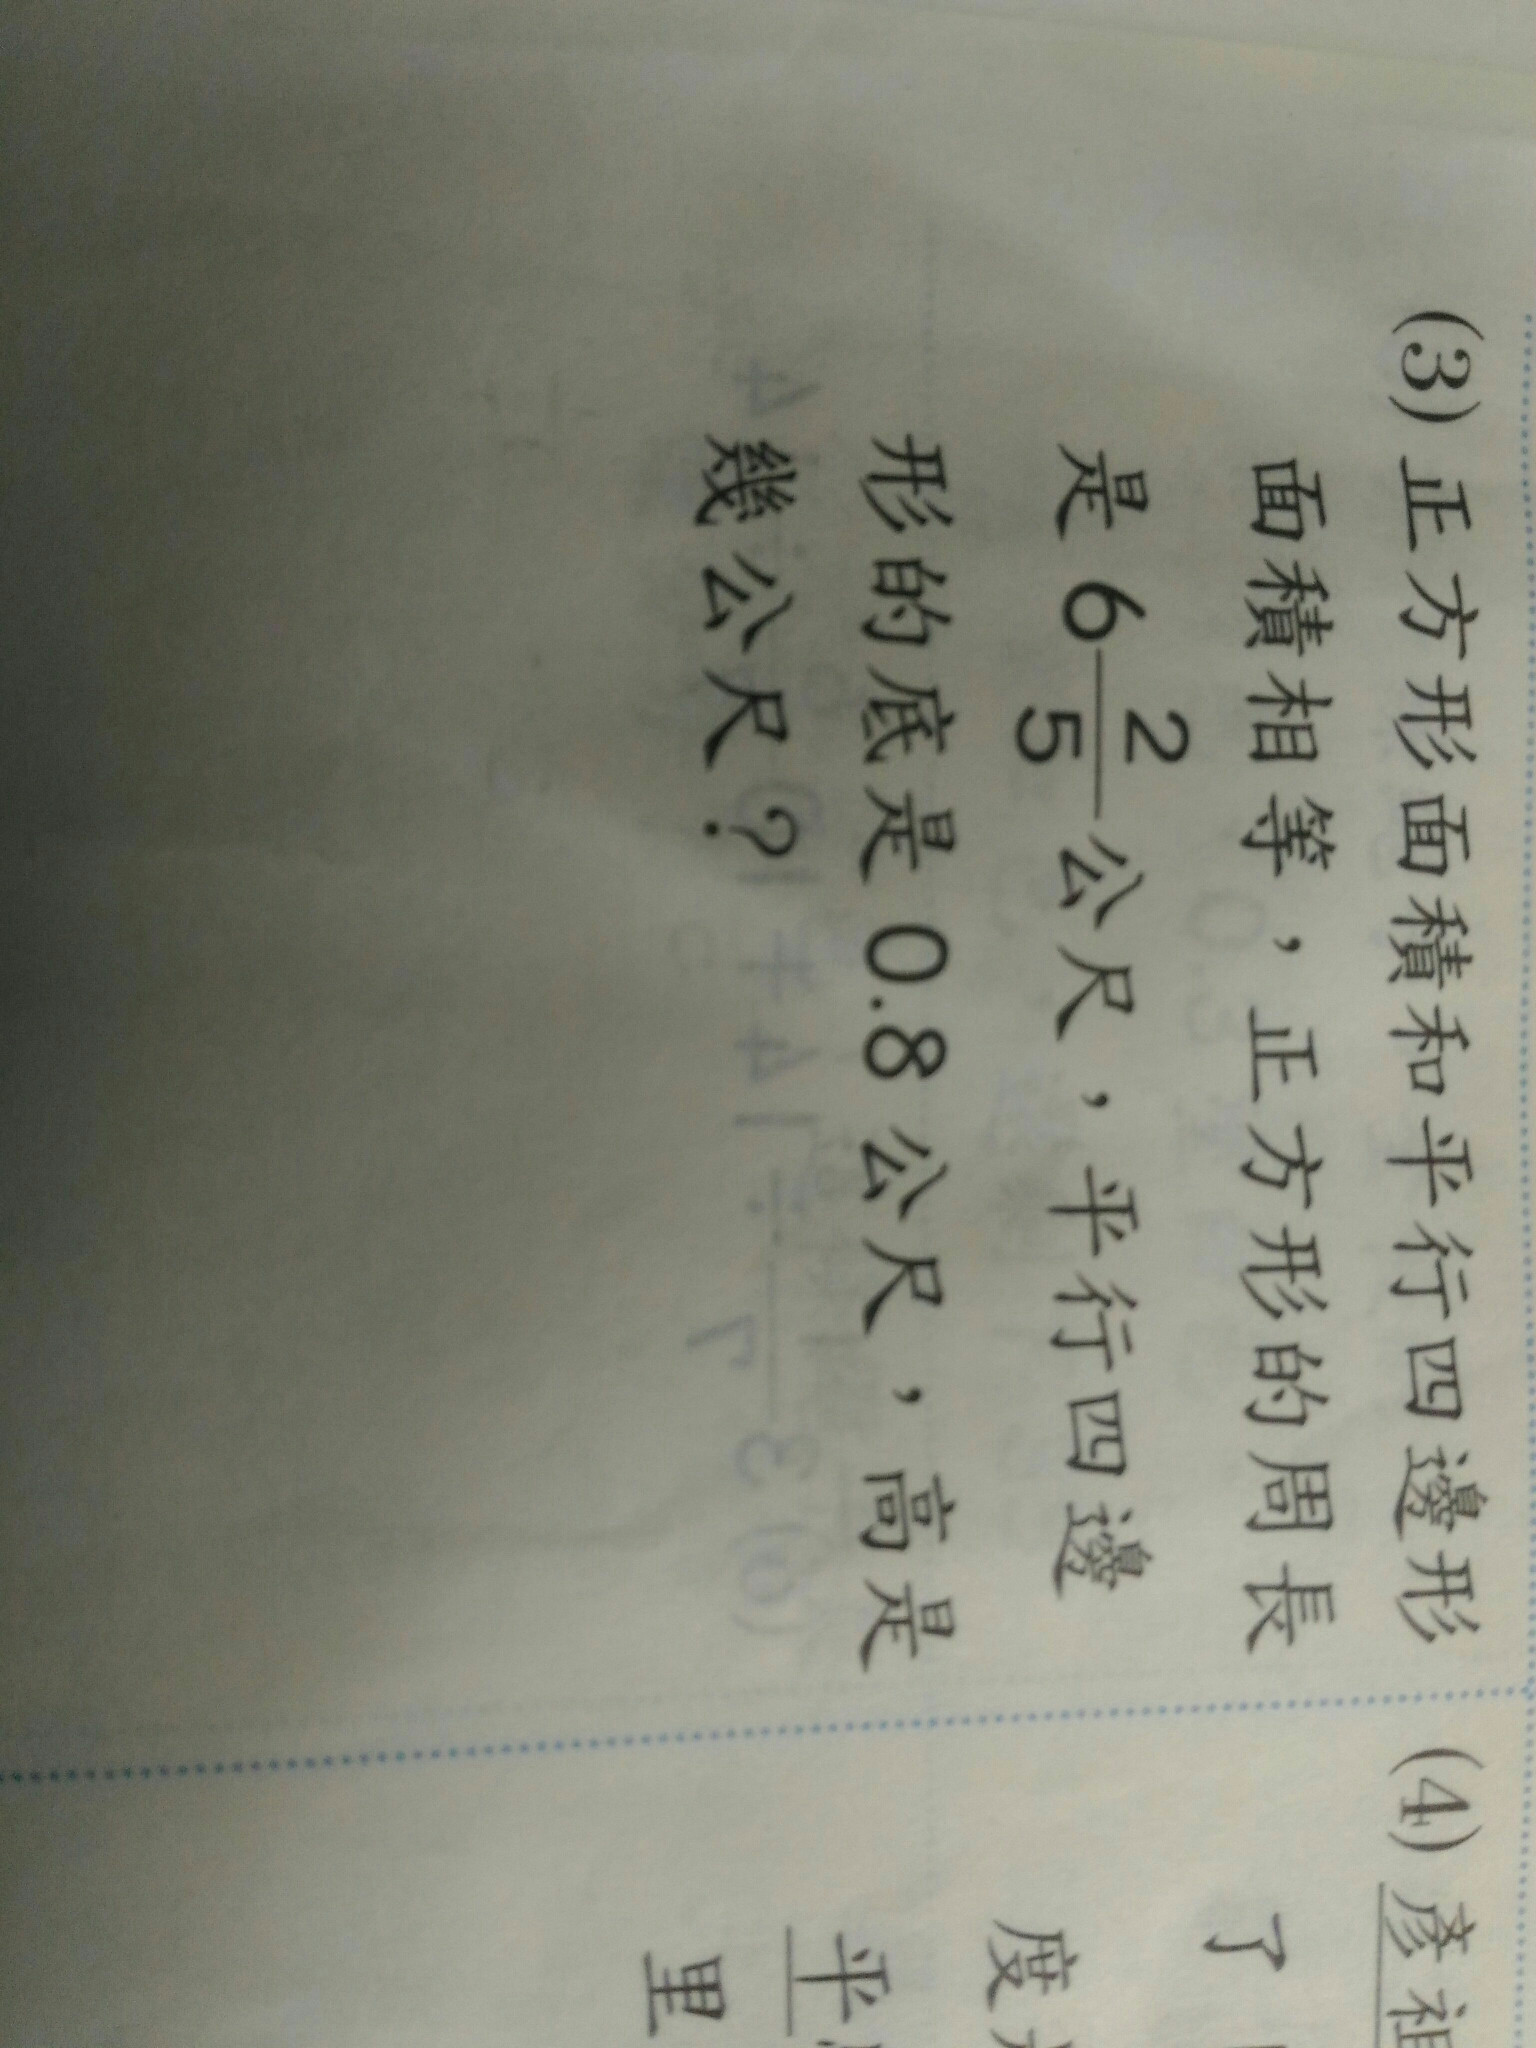 (3) 正方形面積和平行四邊形
面積相等，正方形的周長
是 6 2/5 公尺，平行四邊
形的底是 0.8 公尺，高是
幾公尺？
(4) 彥祖
了
度
平
里